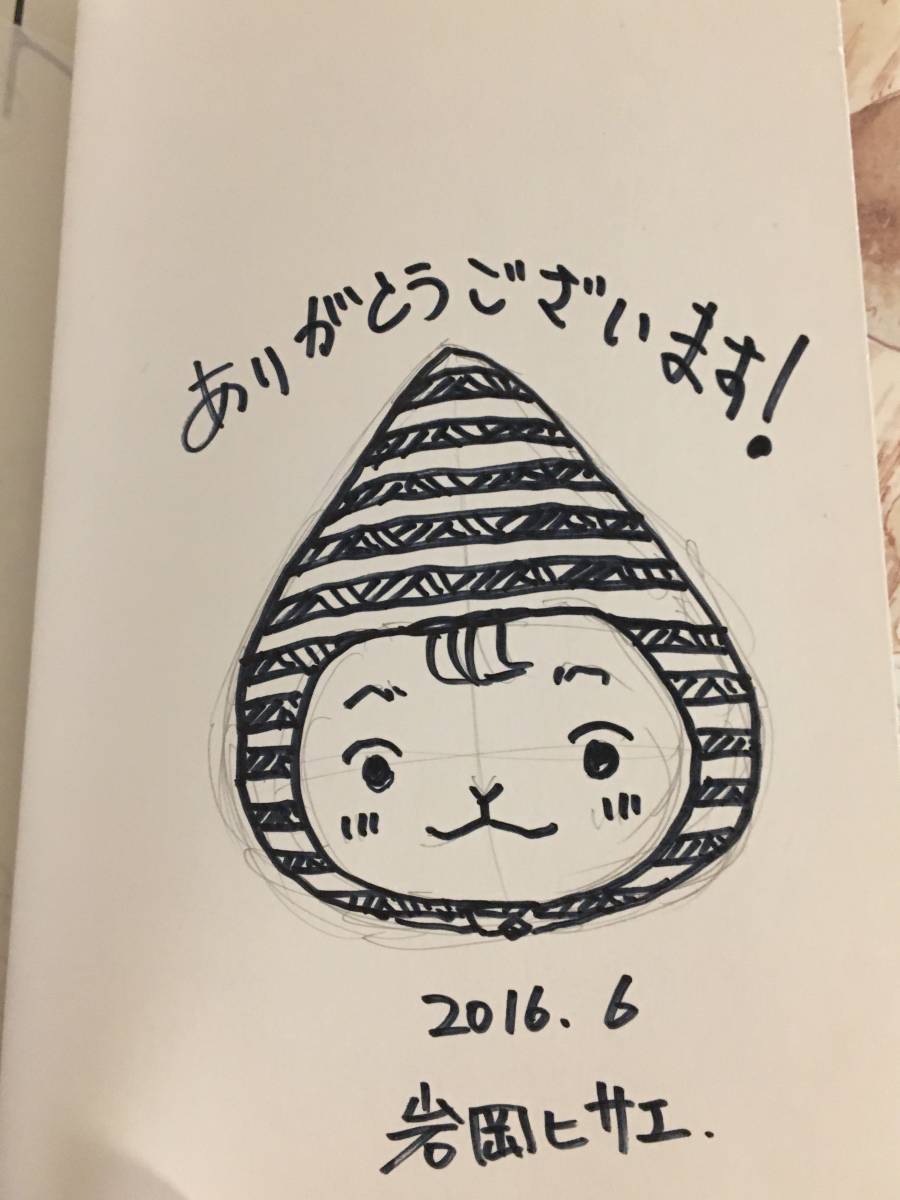 ありがとうございます!
2016.6
岩岡ヒサエ.